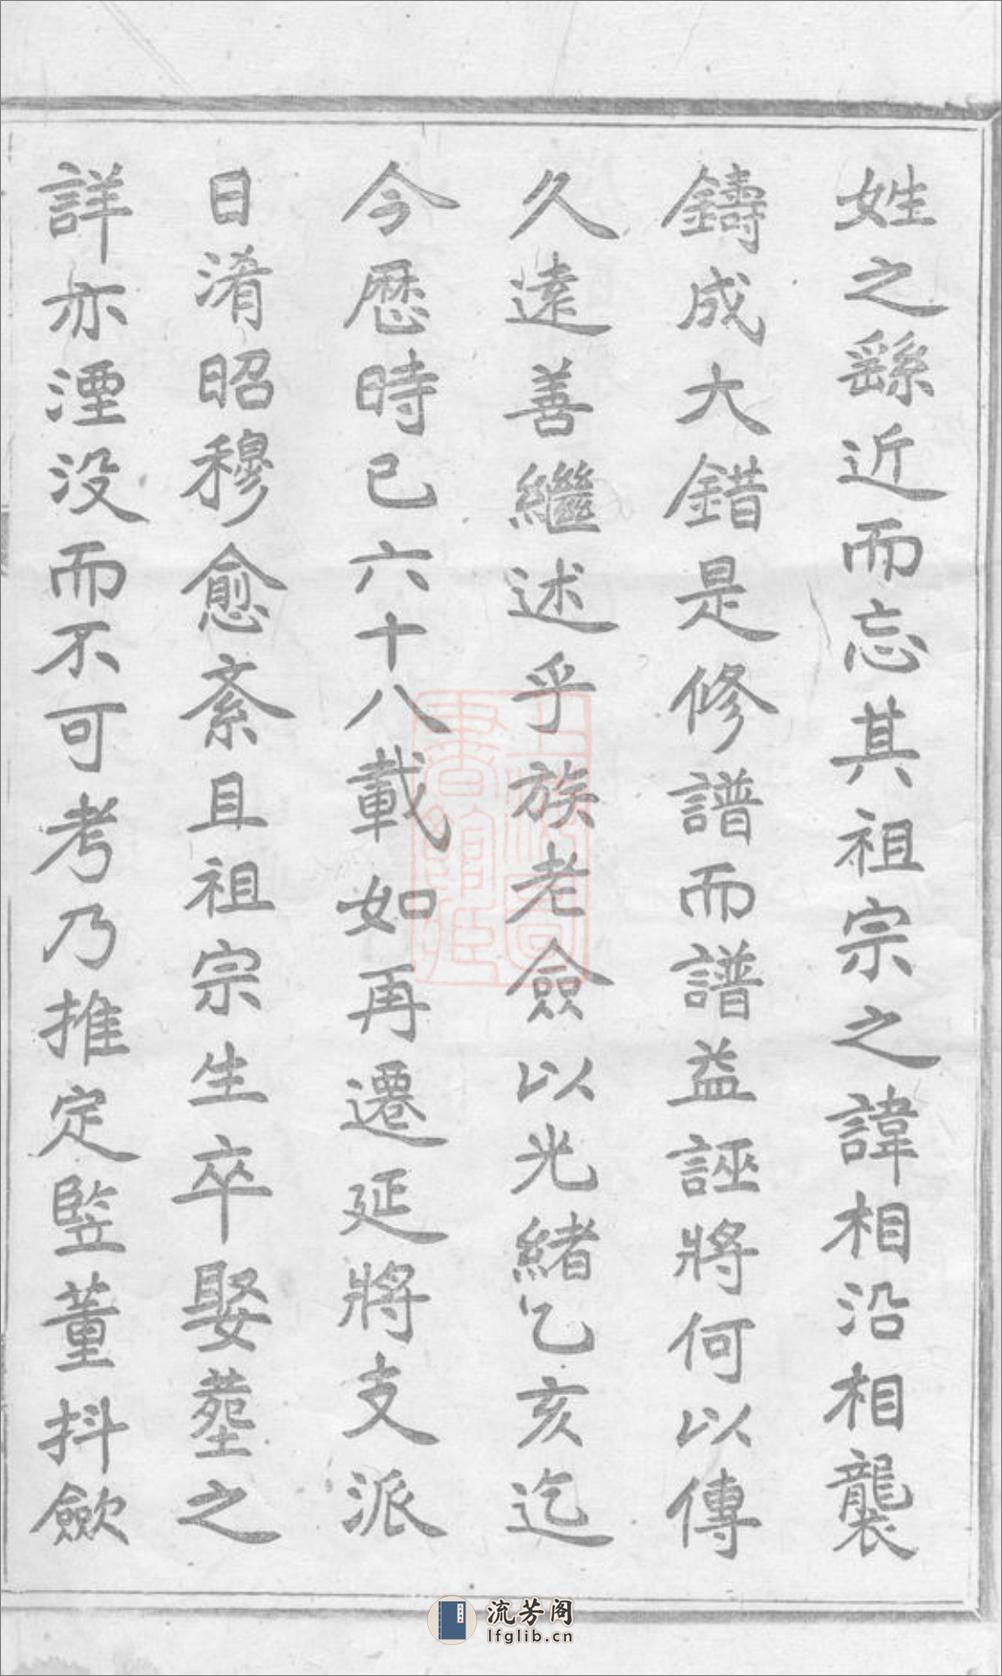 姓之繇近而忘其祖宗之諱相沿相襲
鑄成大錯是修譜而譜益誣將何以傳
久遠善繼述乎族老僉以光緒乙亥迄
今歷時已六十八載如再遷延將支派
日淆昭穆愈紊且祖宗生卒娶塟之
詳亦湮没而不可考乃推定監董抖歛
上海圖書館藏
流芳阁
lfglib.cn